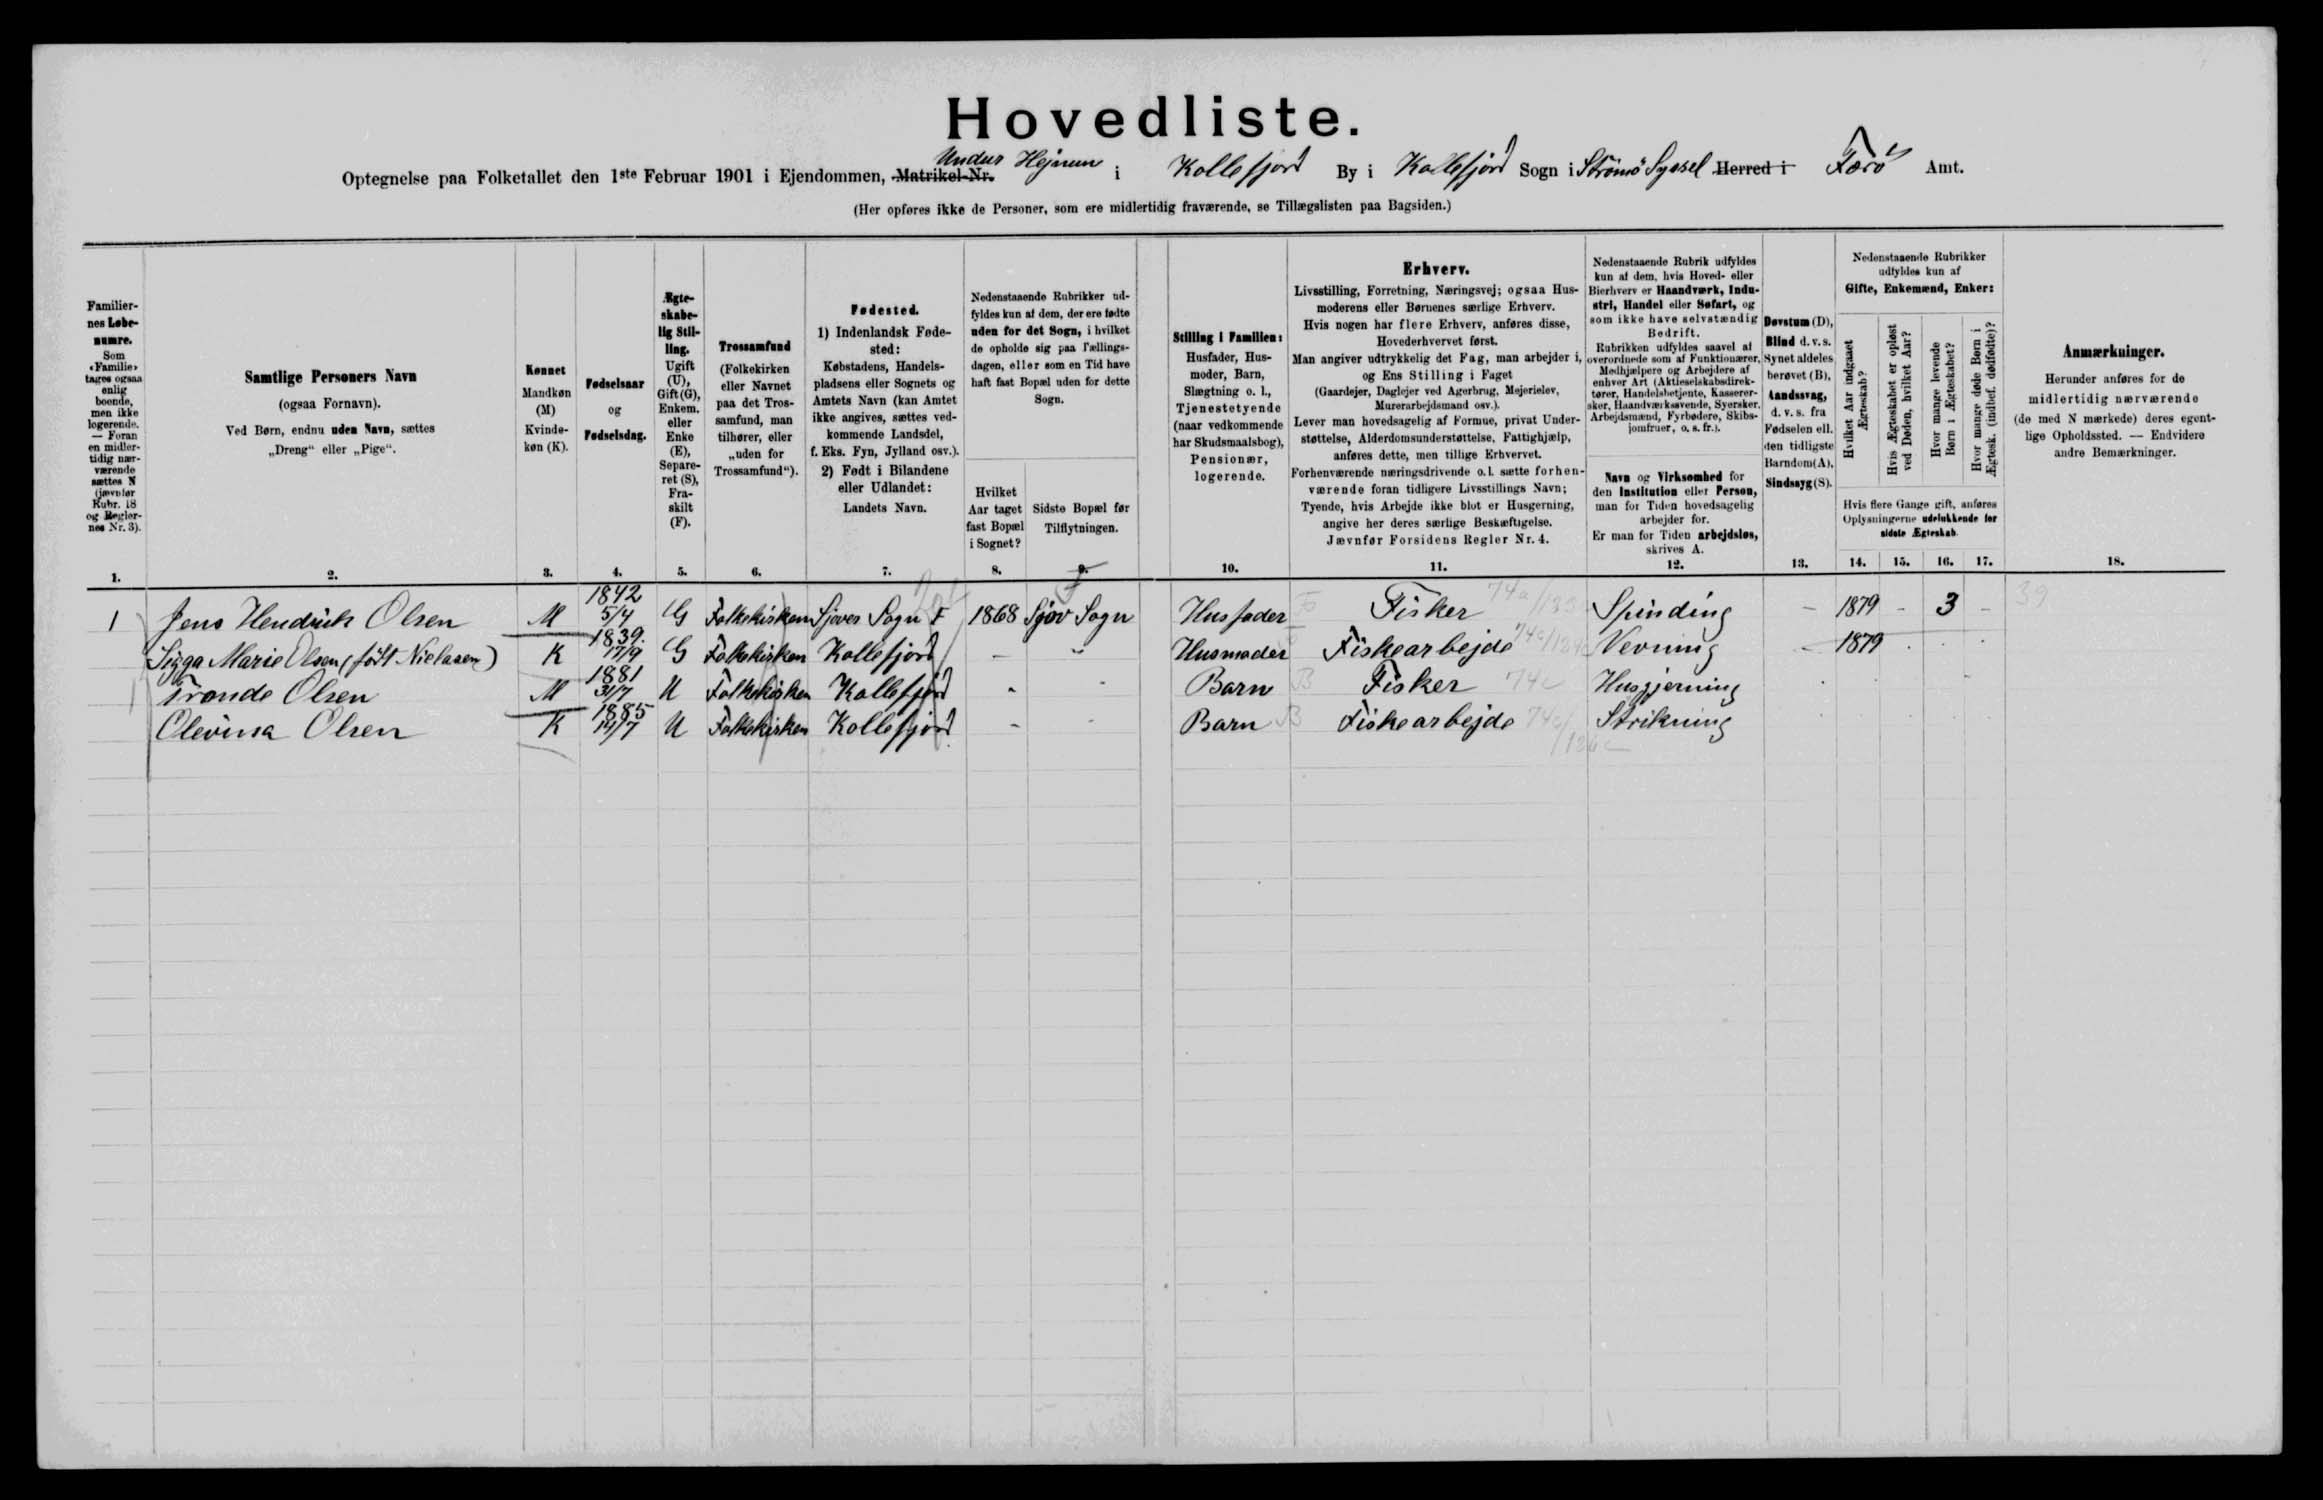 Hovedliste.
Optegnelse paa Folketallet den 1ste Februar 1901 i Ejendommen, Matrikel-Nr. Undur Hejnum i Kollefjord By i Kollefjord Sogn i Strömö Syssel Herred i Færö Amt.
(Her opføres ikke de Personer, som ere midlertidig fraværende, se Tillægslisten paa Bagsiden.)
Familiernes Løbenumre.
Som «Familie» tages ogsaa enlig boende, men ikke logerende. — Foran en midlertidig nærværende sættes N (jævnfør Rubr. 18 og Reglernes Nr. 3).
Samtlige Personers Navn
(ogsaa Fornavn).
Ved Børn, endnu uden Navn, sættes
„Dreng“ eller „Pige“.
Kønnet
Mandkøn
(M)
Kvinde-
køn (K).
Fødselsaar
og
Fødselsdag.
Ægte-
skabe-
lig Stil-
ling.
Ugift
(U),
Gift (G),
Enkem.
eller
Enke
(E),
Separe-
ret (S),
Fra-
skilt
(F).
Trossamfund
(Folkekirken
eller Navnet
paa det Tros-
samfund, man
tilhører, eller
„uden for
Trossamfund“).
Fødested.
1) Indenlandsk Føde-
sted:
Købstadens, Handels-
pladsens eller Sognets og
Amtets Navn (kan Amtet
ikke angives, sættes ved-
kommende Landsdel,
f. Eks. Fyn, Jylland osv.).
2) Født i Bilandene
eller Udlandet:
Landets Navn.
Nedenstaaende Rubrikker ud-
fyldes kun af dem, der ere fødte
uden for det Sogn, i hvilket
de opholde sig paa Tællings-
dagen, eller som en Tid have
haft fast Bopæl uden for dette
Sogn.
Hvilket
Aar taget
fast Bopæl
i Sognet?
Sidste Bopæl før
Tilflytningen.
Stilling i Familien:
Husfader, Hus-
moder, Barn,
Slægtning o. l.,
Tjenestetyende
(naar vedkommende
har Skudsmaalsbog),
Pensionær,
logerende.
Erhverv.
Livsstilling, Forretning, Næringsvej; ogsaa Hus-
moderens eller Børnenes særlige Erhverv.
Hvis nogen har flere Erhverv, anføres disse,
Hovederhvervet først.
Man angiver udtrykkelig det Fag, man arbejder i,
og Ens Stilling i Faget
(Gaardejer, Daglejer ved Agerbrug, Mejerielev,
Murerarbejdsmand osv.).
Lever man hovedsagelig af Formue, privat Under-
støttelse, Alderdomsunderstøttelse, Fattighjælp,
anføres dette, men tillige Erhvervet.
Forhenværende næringsdrivende o. l. sætte forhen-
værende foran tidligere Livsstillings Navn;
Tyende, hvis Arbejde ikke blot er Husgerning,
angive her deres særlige Beskæftigelse.
Jævnfør Forsidens Regler Nr. 4.
Nedenstaaende Rubrik udfyldes
kun af dem, hvis Hoved- eller
Bierhverv er Haandværk, Indu-
stri, Handel eller Søfart, og
som ikke have selvstændig
Bedrift.
Rubrikken udfyldes saavel af
overordnede som af Funktionærer,
Medhjælpere og Arbejdere af
enhver Art (Aktieselskabsdirek-
tører, Handelsbetjente, Kasserer-
sker, Haandværkssvende, Syersker,
Arbejdsmænd, Fyrbødere, Skibs-
jomfruer, o. s. fr.).
Navn og Virksomhed for
den Institution eller Person,
man for Tiden hovedsagelig
arbejder for.
Er man for Tiden arbejdsløs,
skrives A.
Døvstum (D),
Blind d. v. s.
Synet aldeles
berøvet (B),
Aandssvag,
d. v. s. fra
Fødselen ell.
den tidligste
Barndom (A),
Sindssyg (S).
Nedenstaaende Rubrikker
udfyldes kun af
Gifte, Enkemænd, Enker:
Hvilket Aar indgaaet
Ægteskab?
Hvis Ægteskabet er opløst
ved Døden, hvilket Aar?
Hvor mange levende
Børn i Ægteskabet?
Hvor mange døde Børn i
Ægtesk. (indbef. dødfødte)?
Hvis flere Gange gift, anføres
Oplysningerne udelukkende for
sidste Ægteskab.
Anmærkninger.
Herunder anføres for de
midlertidig nærværende
(de med N mærkede) deres egent-
lige Opholdssted. — Endvidere
andre Bemærkninger.
1. 2. 3. 4. 5. 6. 7. 8. 9. 10. 11. 12. 13. 14. 15. 16. 17. 18.
1 Jens Hendrik Olsen M 1842 5/4 G Folkekirken Sjóver Sogn F 1868 Sjov Sogn Husfader Fisker 74a Spinding - 1879 - 3 - 39
Sigga Marie Olsen (født Nielsen) K 1839. 17/9 G Folkekirken Kollefjord - - Husmoder Fiskearbejde Vevning - 1879
Tronde Olsen M 1881 31/7 U Folkekirken Kollefjord - - Barn B Fisker 74c Husgjerning
Olevina Olsen K 1885 14/7 U Folkekirken Kollefjord - - Barn B Fiskearbejde Strikning